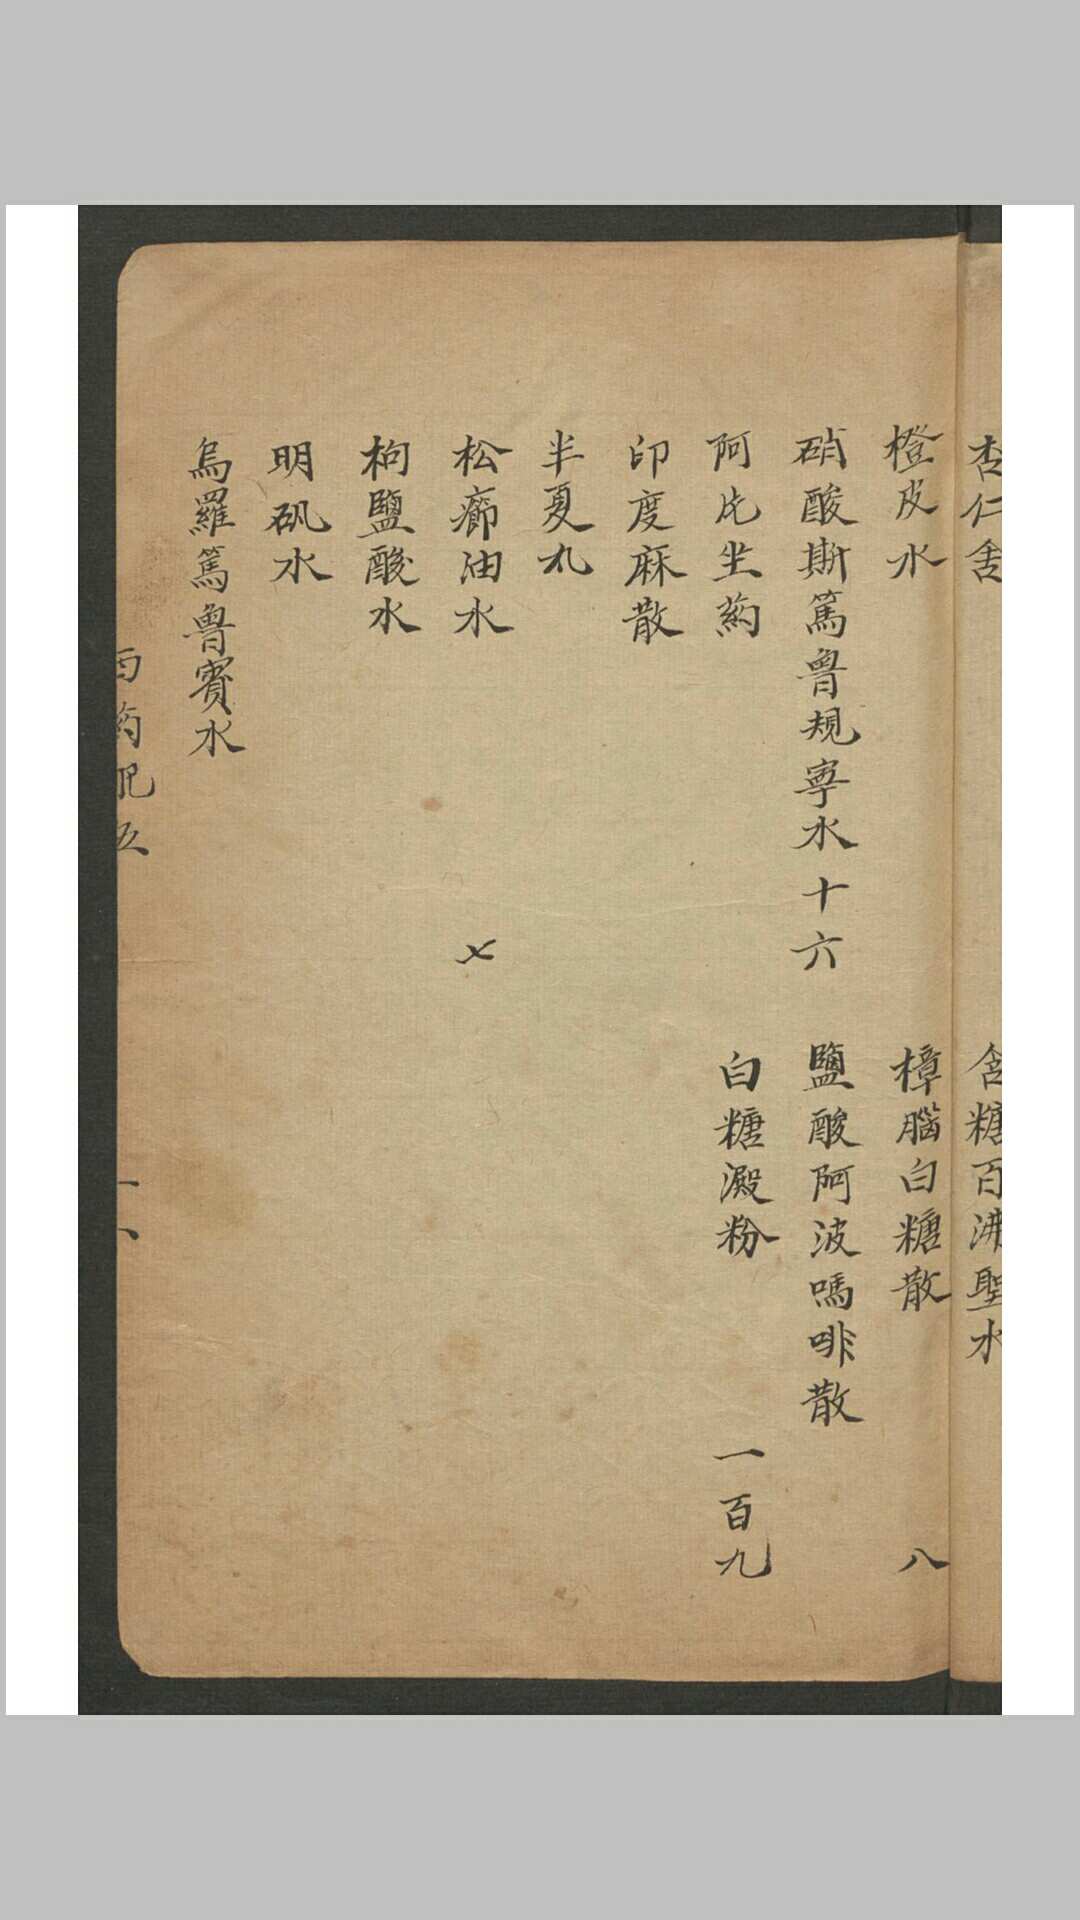 杏仁舍
含糖百沸聖水
橙皮水
樟腦白糖散 八
硝酸斯篤魯規寧水 十六
鹽酸阿波嗎啡散
阿片坐葯
白糖澱粉 一百九
印度麻散
半夏丸
松癤油水
枸鹽酸水
明矾水
烏羅篤魯賓水